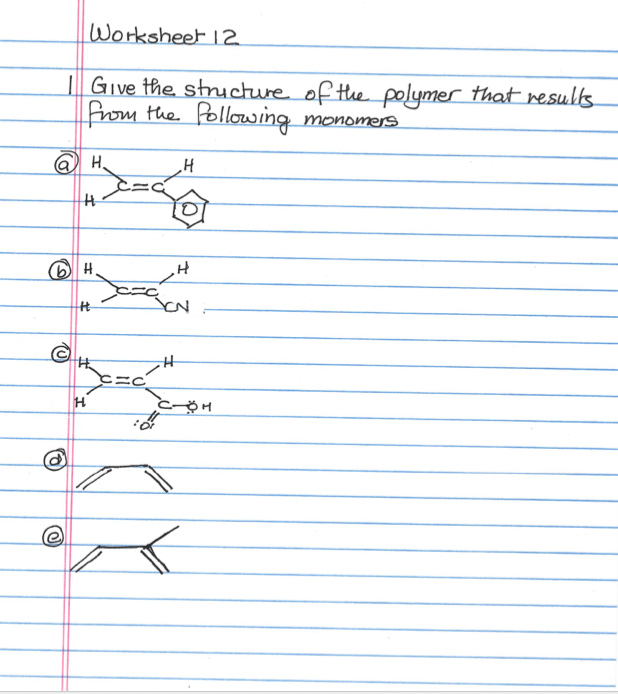 Worksheet 12
1 Give the structure of the polymer that results
from the following monomers
ⓐ H H
C=C
H
ⓑ H H
C=C
H CN
ⓒ H H
C=C
H C-ÖH
:O:
ⓓ
ⓔ